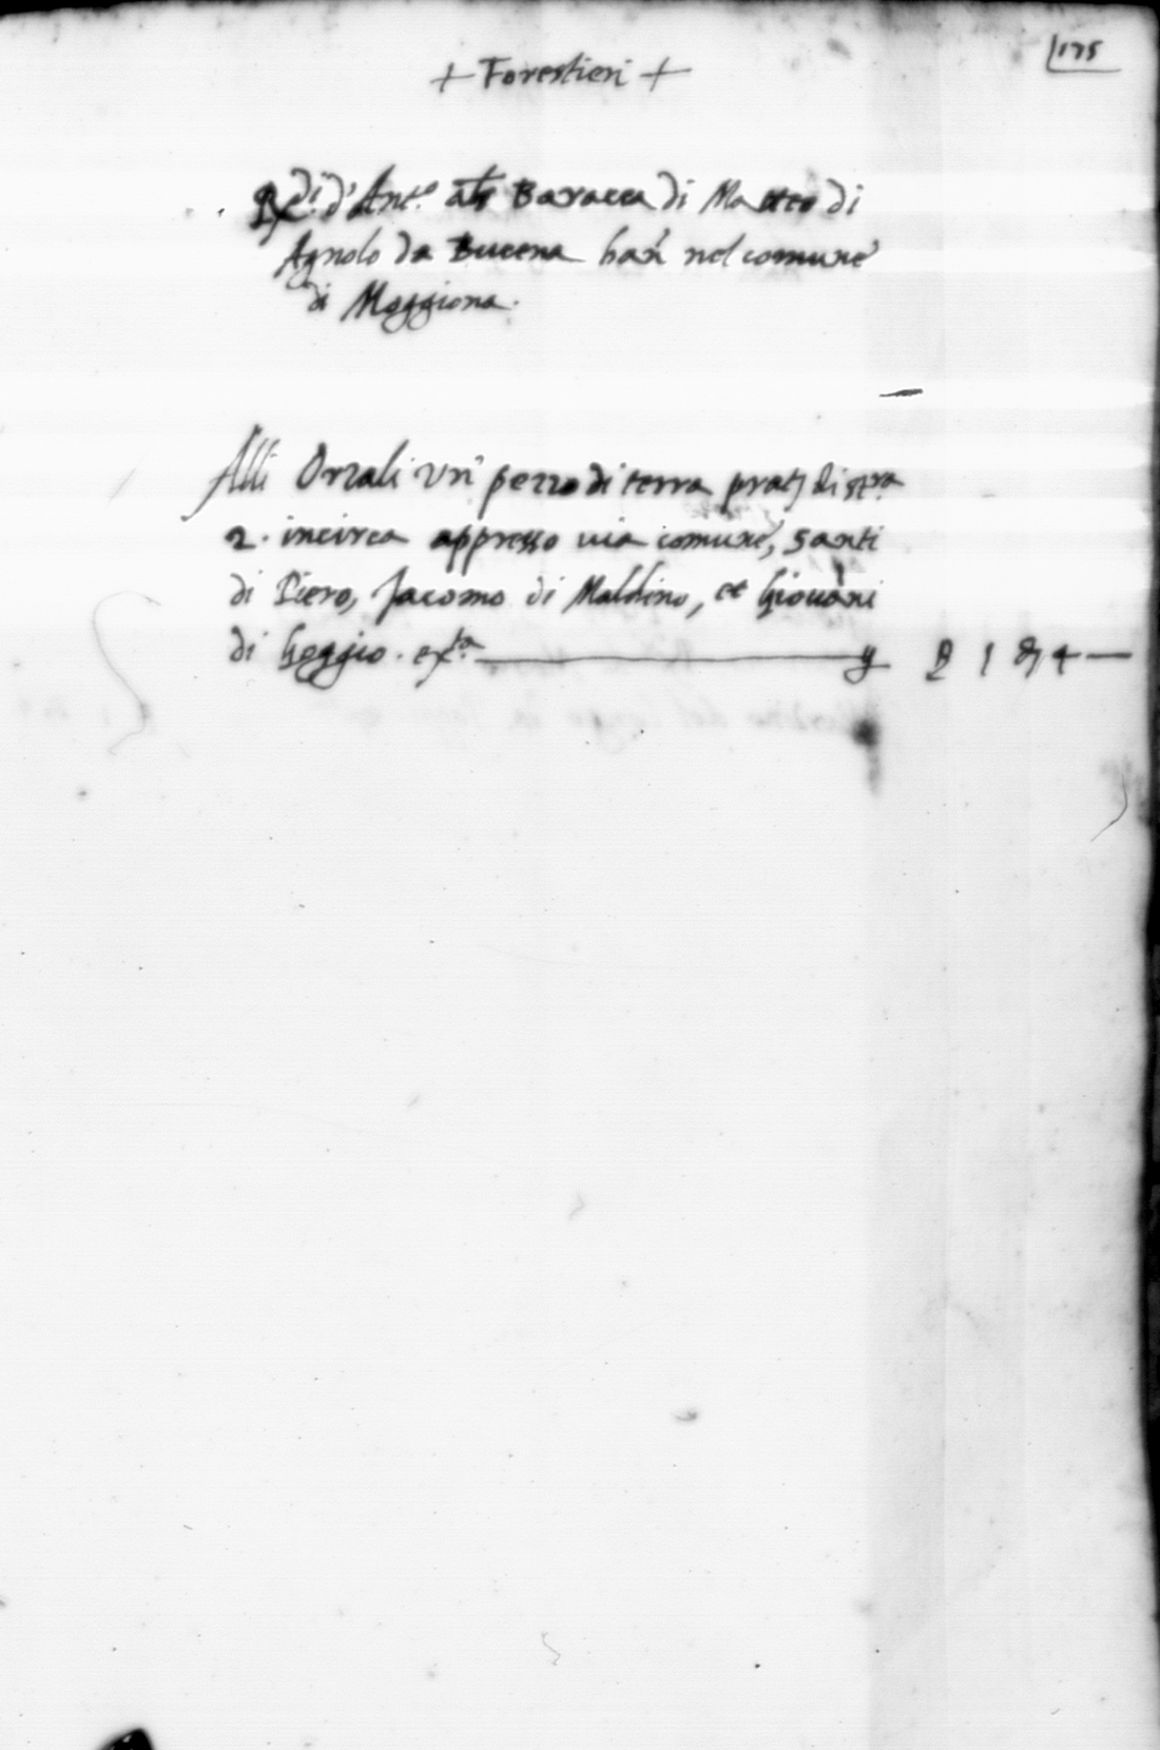 175
+ Forestieri +
Rede d'Anto als Baracca di Matteo di
Agnolo da Bucena han nel comune
di Moggiona.
Alli Orzali un pezzo di terra prat di stra
2. incirca appresso via comune, Santi
di Piero, Jacomo di Maldino, et Giouani
di Goggio. exta